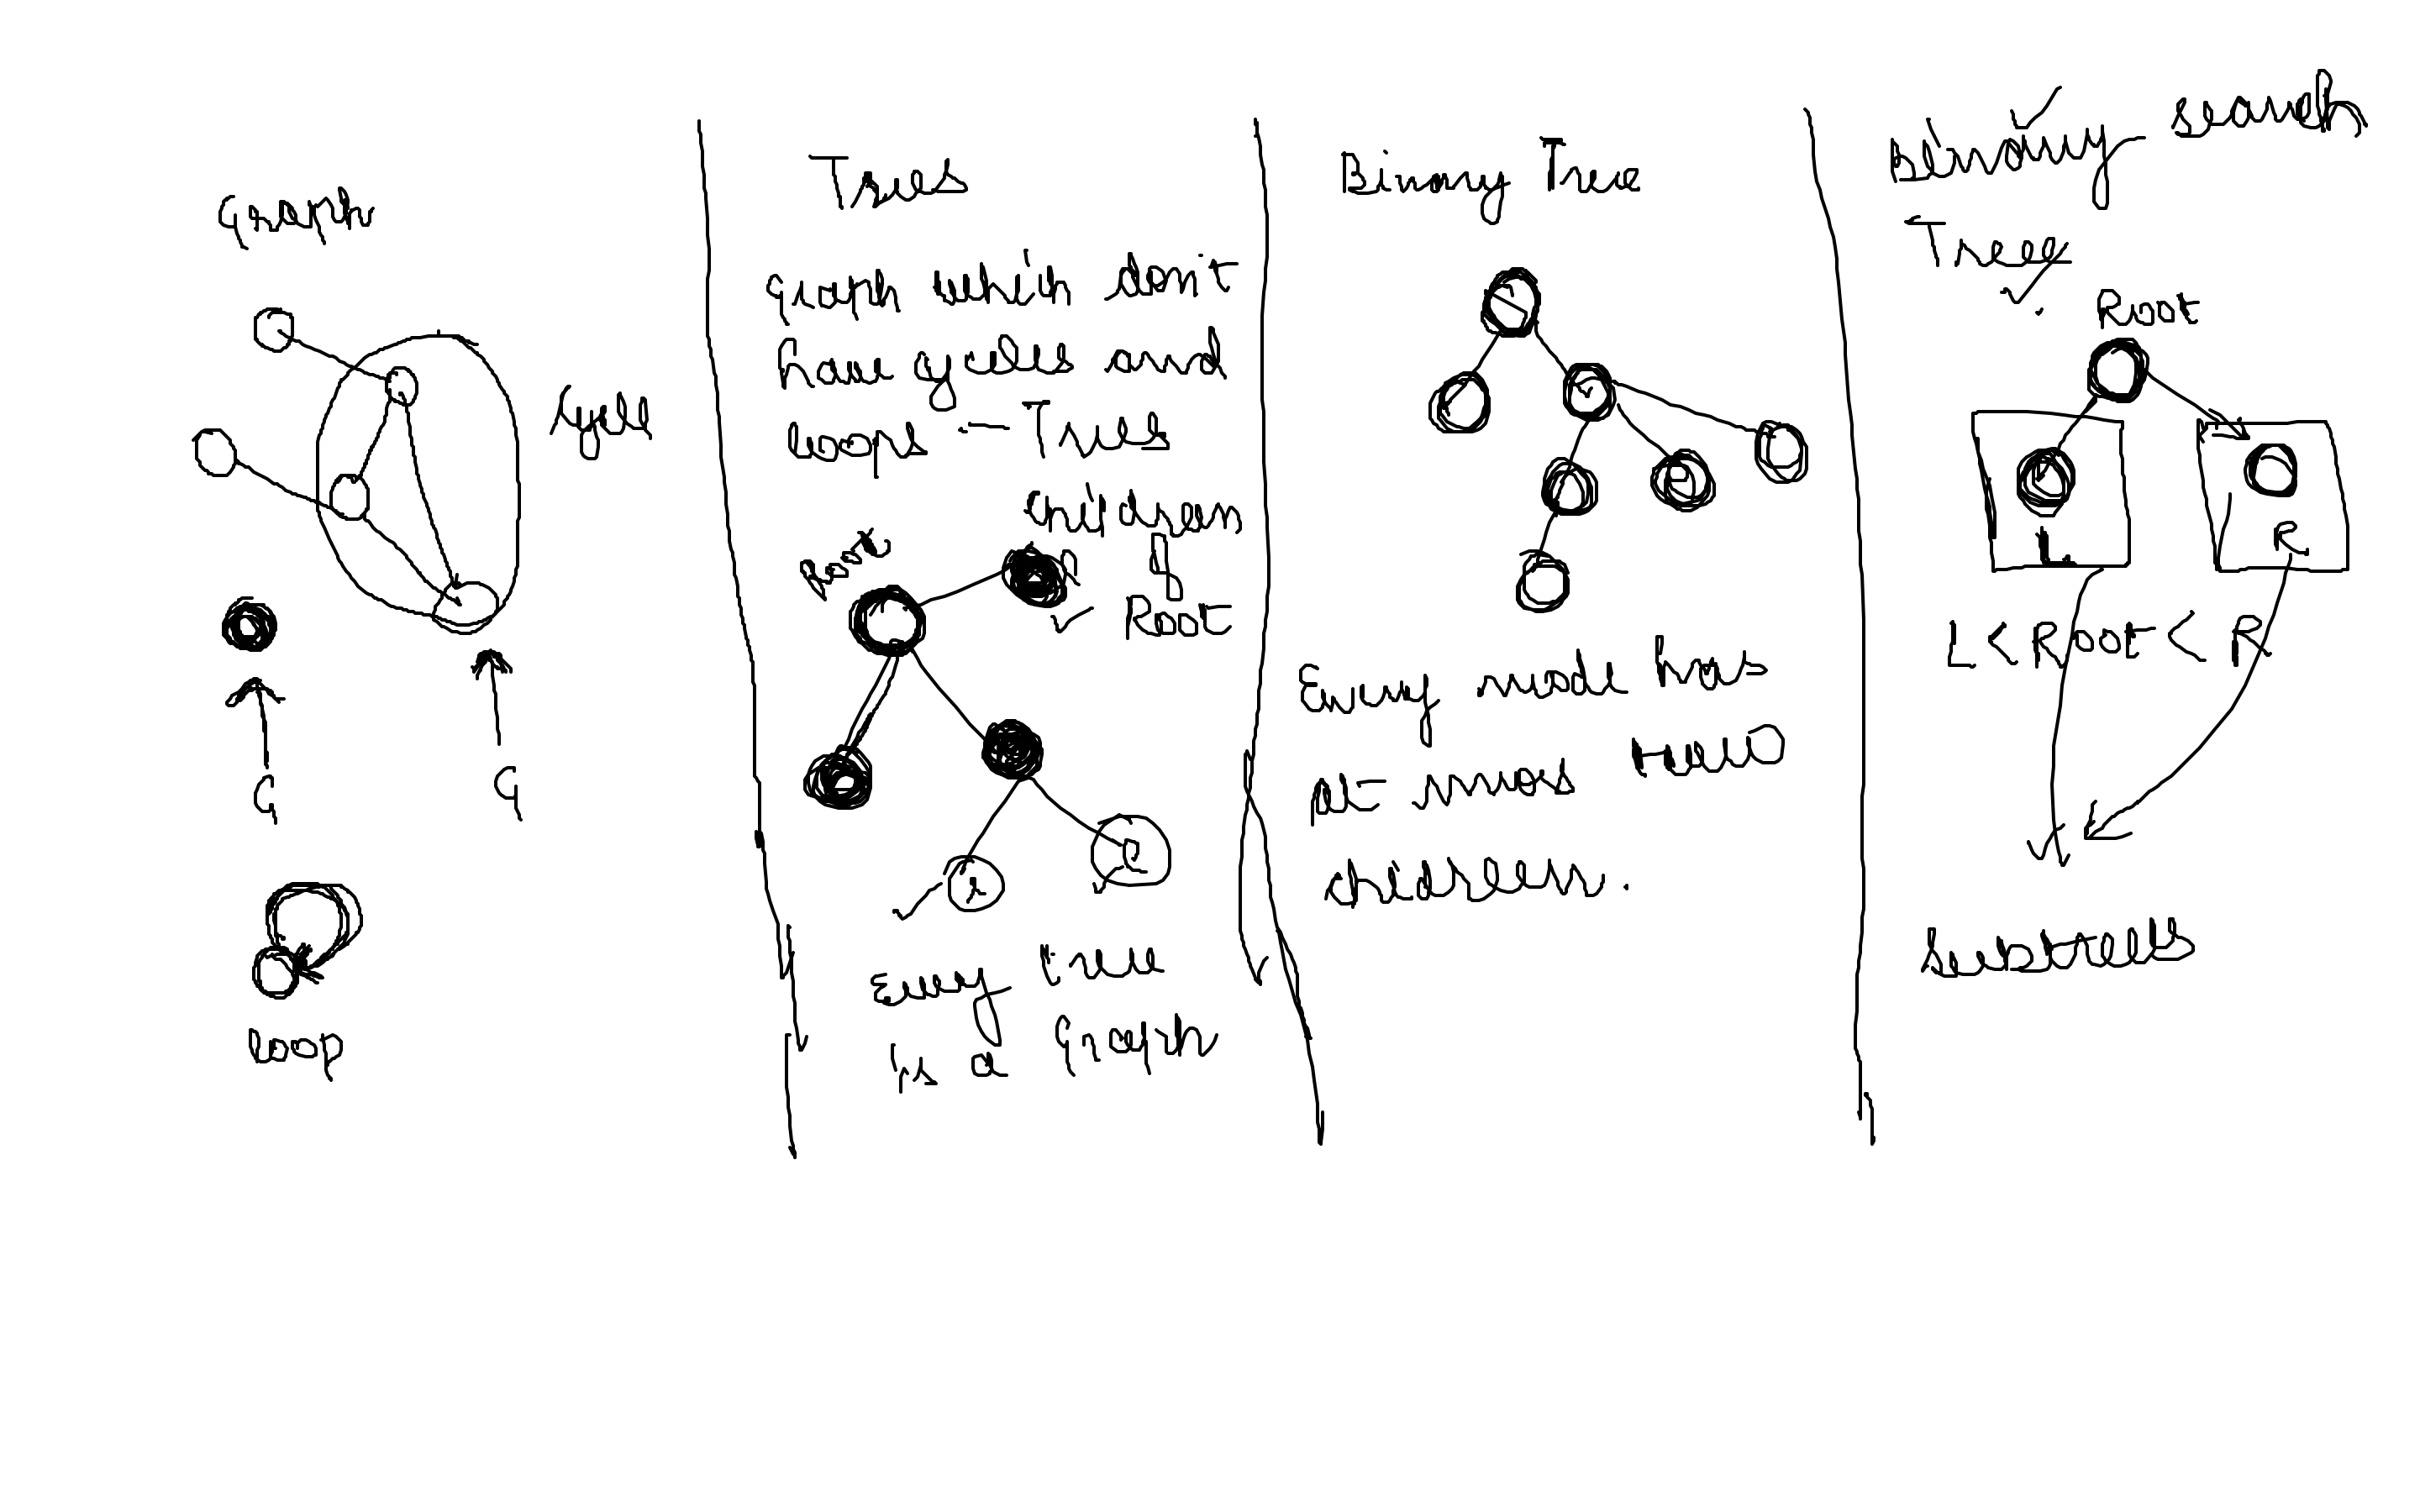 Graph
cycle
G
G
loop
Trees
graph which don't
have cycles and
loops - Trees
children
of
Root
Root
Every tree
is a Graph
Binary Tree
Every node has
at-most two
children.
binary search
Tree
Root
L
R
L < Root < R
subtrees